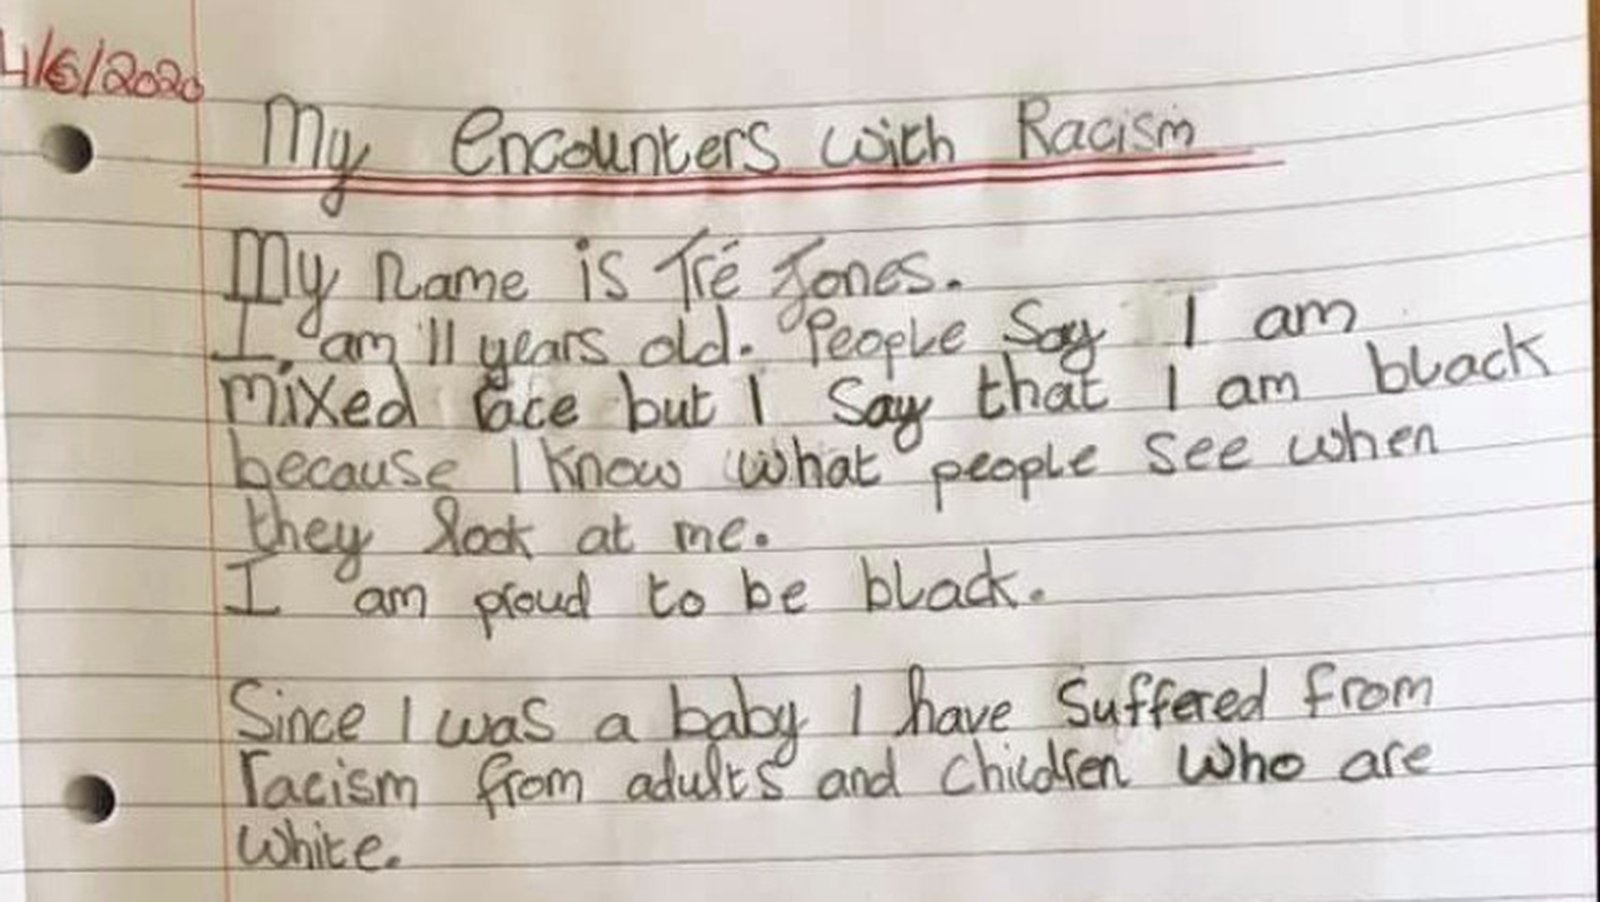 4/6/2020
My Encounters with Racism
My name is Tré Jones.
I am 11 years old. People Say I am
mixed race but I Say that I am black
because I know what people see when
they look at me.
I am proud to be black.
Since I was a baby I have Suffered from
racism from adults and children who are
white.